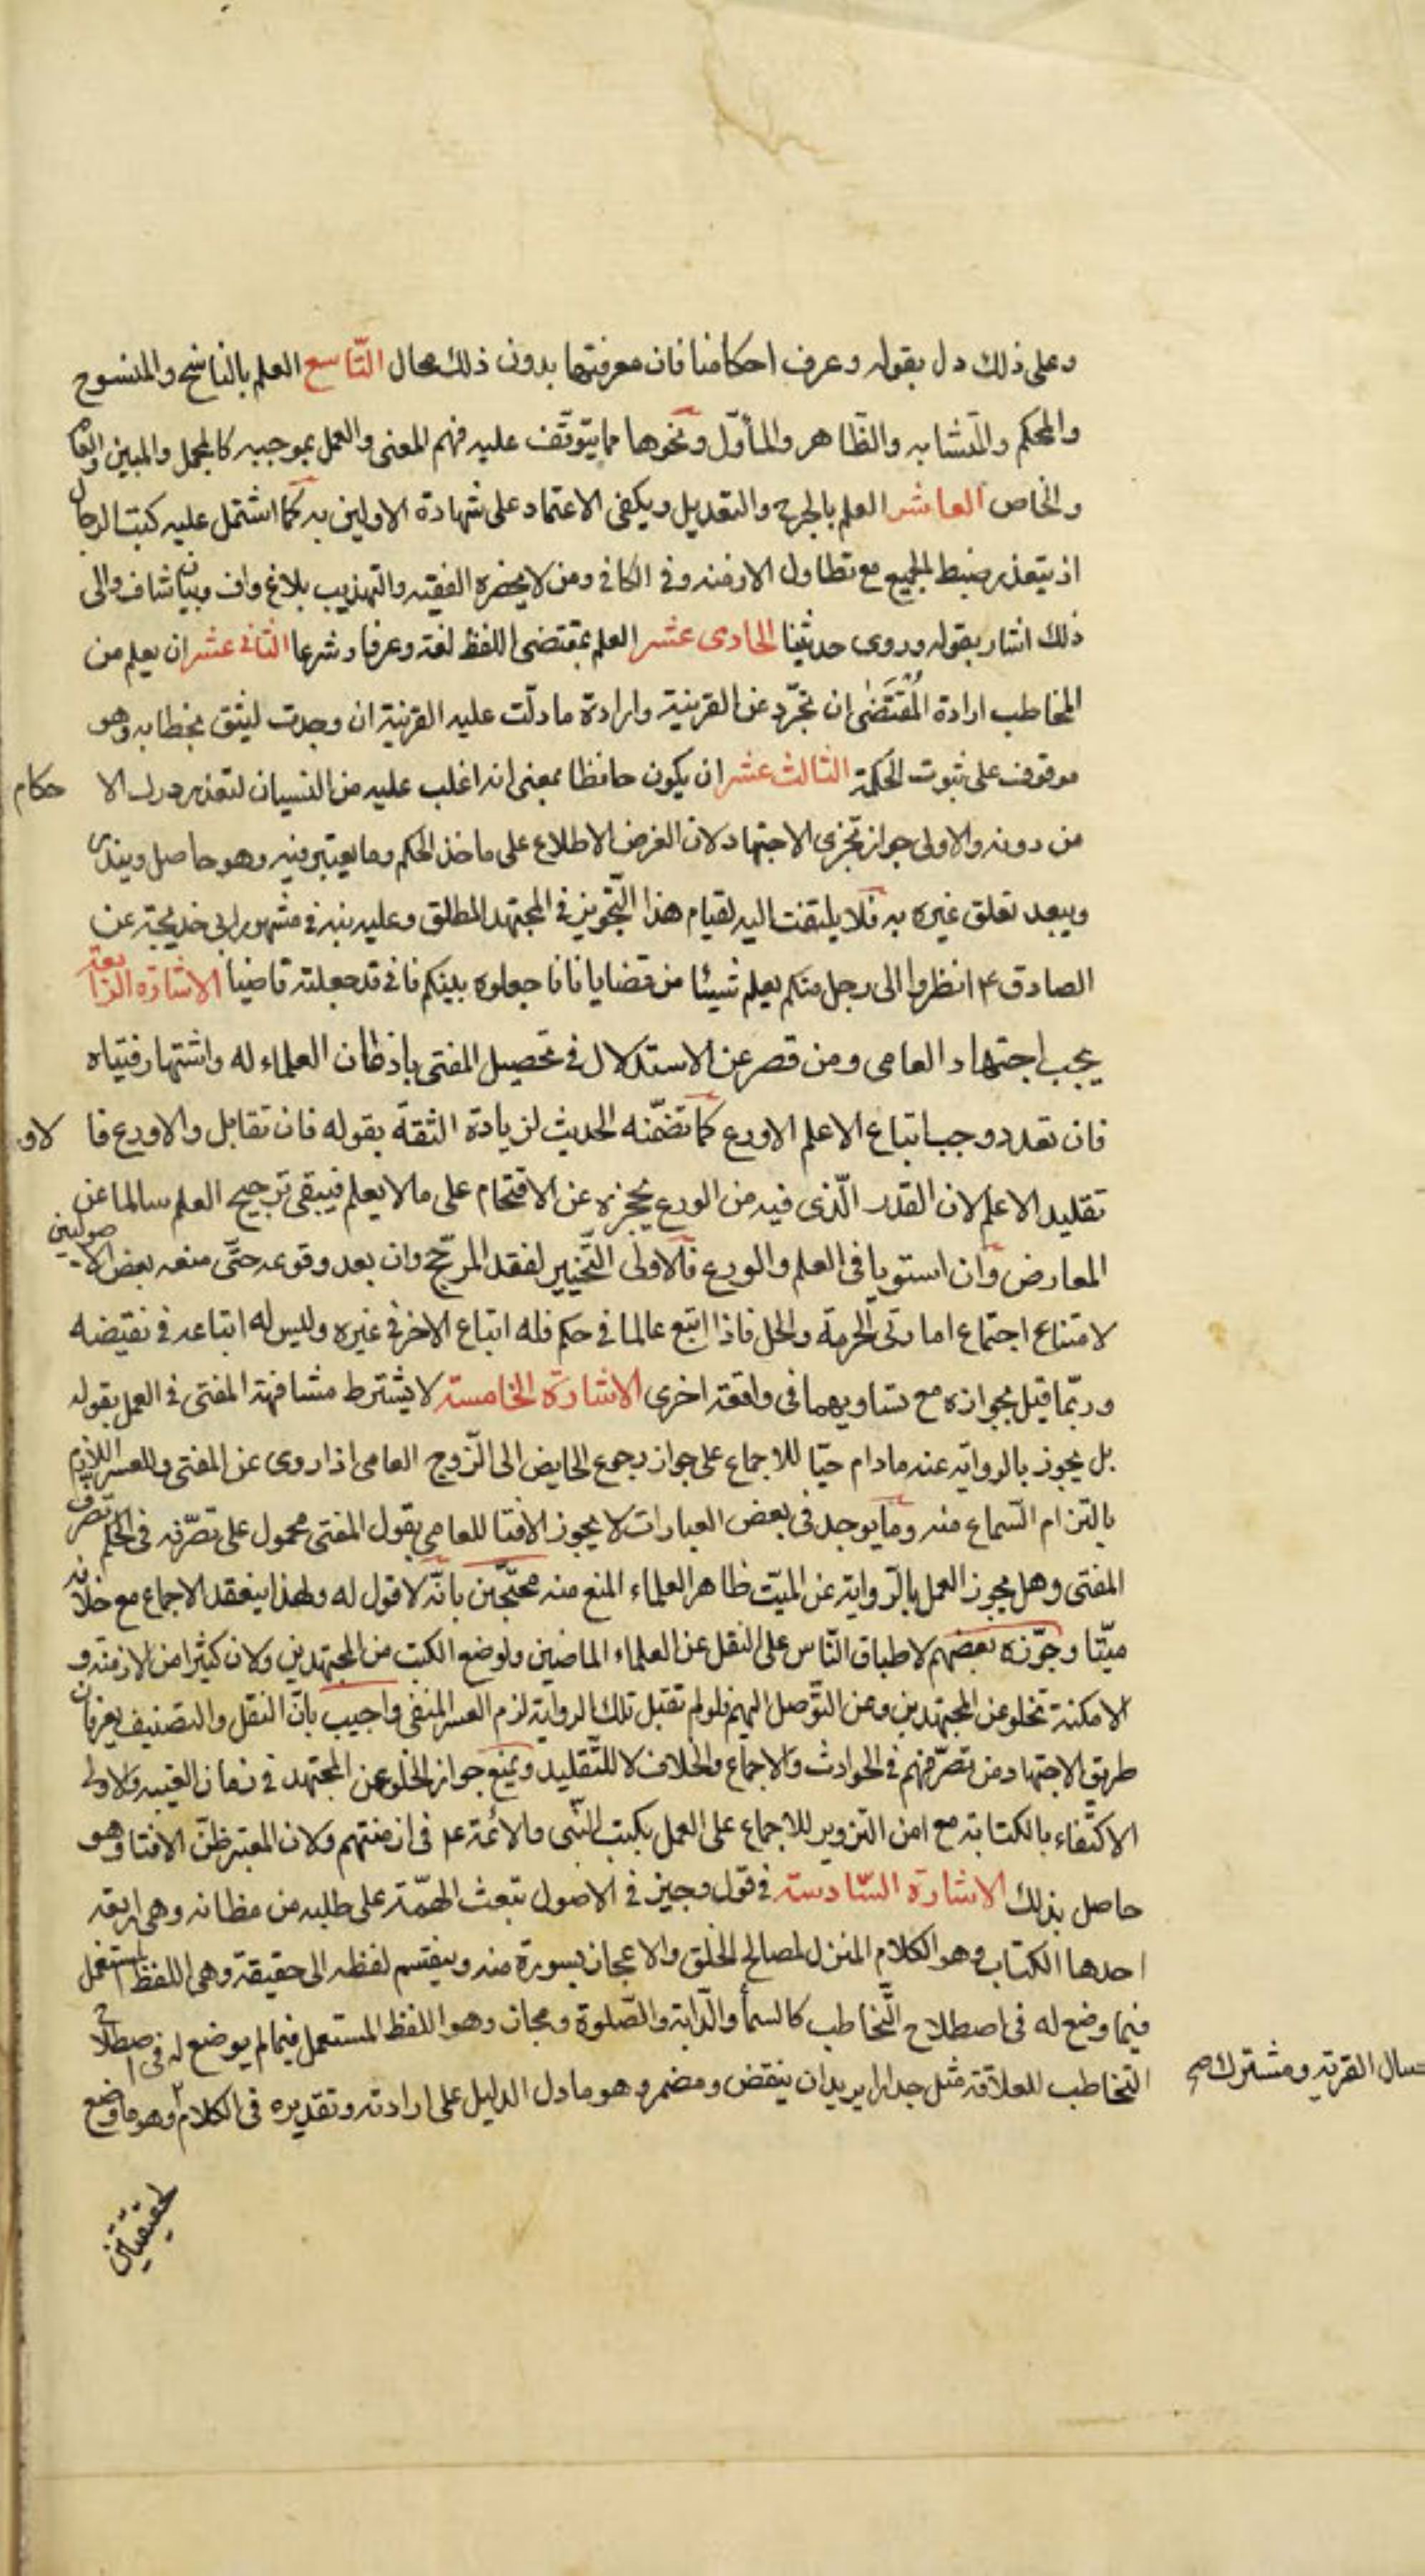 وعلى ذلك دل بقوله وعرف احكامنا فان معرفتها بدون ذلك محال التّاسع العلم بالناسخ والمنسوخ
والمحكم والمتشابه والظّاهر والمأوّل ونحوها مما يتوقّف عليه فهم المعنى والعمل بموجبه كالمجمل والمبين والعام
والخاص العاشر العلم بالجرح والتعديل ويكفى الاعتماد على شهادة الاولين به كما اشتمل عليه كتب الرجال
اذ يتعذر ضبط الجميع مع تطاول الازمنه وفى الكافى ومن لا يحضره الفقيه والتهذيب بلاغ واف وبيان شاف والى
ذلك اشار بقوله وروى حديثنا الحادى عشر العلم بمقتضى اللفظ لغة وعرفا وشرعا الثانى عشر ان يعلم من
المخاطب ارادة المُقتَضىٰ ان تجرّد عن القرينة وارادة ما دلّت عليه القرينة ان وجدت ليثق بخطابه وهو
موقوف على ثبوت الحكمة الثالث عشر ان يكون حافظا بمعنى انه اغلب عليه من النسيان لتعذر درك الا حكام
من دونه والاولى جواز تجزى الاجتهاد لان الغرض الاطلاع على ماخذ الحكم وما يعتبر فيه وهو حاصل ويندر
ويبعد تعلق غيره به فلا يلتفت اليه لقيام هذا التّجويز فى المجتهد المطلق وعليه نبه فى مشهور ابى خديجة عن
الصادق ع انظروا الى رجل منكم يعلم شيئا من قضايانا فاجعلوه بينكم فانى قد جعلته قاضيا الاشارة الرابعة
يجب اجتهاد العامى ومن قصر عن الاستدلال فى تحصيل المفتى باذعان العلماء له واشتهار فتياه
فان تعدد وجب اتباع الاعلم الاورع كما تضمّنه الحديث لزيادة الثقة بقوله فان تقابل والاورع فا لاو
تقليد الاعلم لان القدر الّذى فيه من الورع يحجزه عن الاقتحام على ما لا يعلم فيبقى ترجيح العلم سالما عن
المعارض وان استويا فى العلم والورع فالاولى التّخيير لفقد المرجّح وان بعد وقوعه حتّى منعه بعض الاصوليين
لامتناع اجتماع امارتى الحرمة والحل فاذا اتبع عالما فى حكم فله اتباع الاخر فى غيره وليس له اتباعه فى نقيضه
وربّما قيل بجوازه مع تساويهما فى واقعة اخرى الاشارة الخامسة لا يشترط مشافهة المفتى فى العمل بقوله
بل يجوز بالرواية عنه مادام حيّا للاجماع على جواز رجوع الحايض الى الزّوج العامى اذا روى عن المفتى وللعسر اللازم
بالتزام السّماع منه وما يوجد فى بعض العبارات لا يجوز الافتا للعامى بقول المفتى محمول على تصرّفه فى الحكم تصرف
المفتى وهل يجوز العمل بالرّواية عن الميّت ظاهر العلماء المنع منه محتجّين بانّه لا قول له ولهذا ينعقد الاجماع مع خلافه
ميّتا وجوّزه بعضهم لاطباق النّاس على النقل عن العلماء الماضين ولوضع الكتب من المجتهدين ولان كثيرا من الازمنة و
الامكنة تخلو عن المجتهدين وعن التّوصل اليهم فلو لم تقبل تلك الرواية لزم العسر المنفى واجيب بانّ النقل والتصنيف يعرفان
طريق الاجتهاد من تصرّفهم فى الحوادث والاجماع والخلاف لا للتّقليد ويمنع جواز الخلو عن المجتهد فى زمان الغيبه والاولى
الاكتفاء بالكتابة مع امن التزوير للاجماع على العمل بكتب النّبى والائمّة ع فى ازمنتهم ولان المعتبر ظنّ الافتا وهو
حاصل بذلك الاشارة السّادسة فى قول وجيز فى الاصول تبعث الهمّة على طلبه من مظانه وهى اربعه
احدها الكتاب وهو الكلام المنزل لمصالح الخلق والاعجاز بسورة منه وينقسم لفظه الى حقيقة وهى اللفظ المستعمل
فيما وضع له فى اصطلاح التّخاطب كالسمأ والدّابة والصّلوة ومجاز وهو اللفظ المستعمل فيما لم يوضع له فى اصطلاح
التخاطب للعلاقة مثل جدارا يريد ان ينقض ومضمر وهو ما دل الدليل على ارادته وتقديره فى الكلام وهو ما وضع
القرية ومشترك صح
لحقيقتين